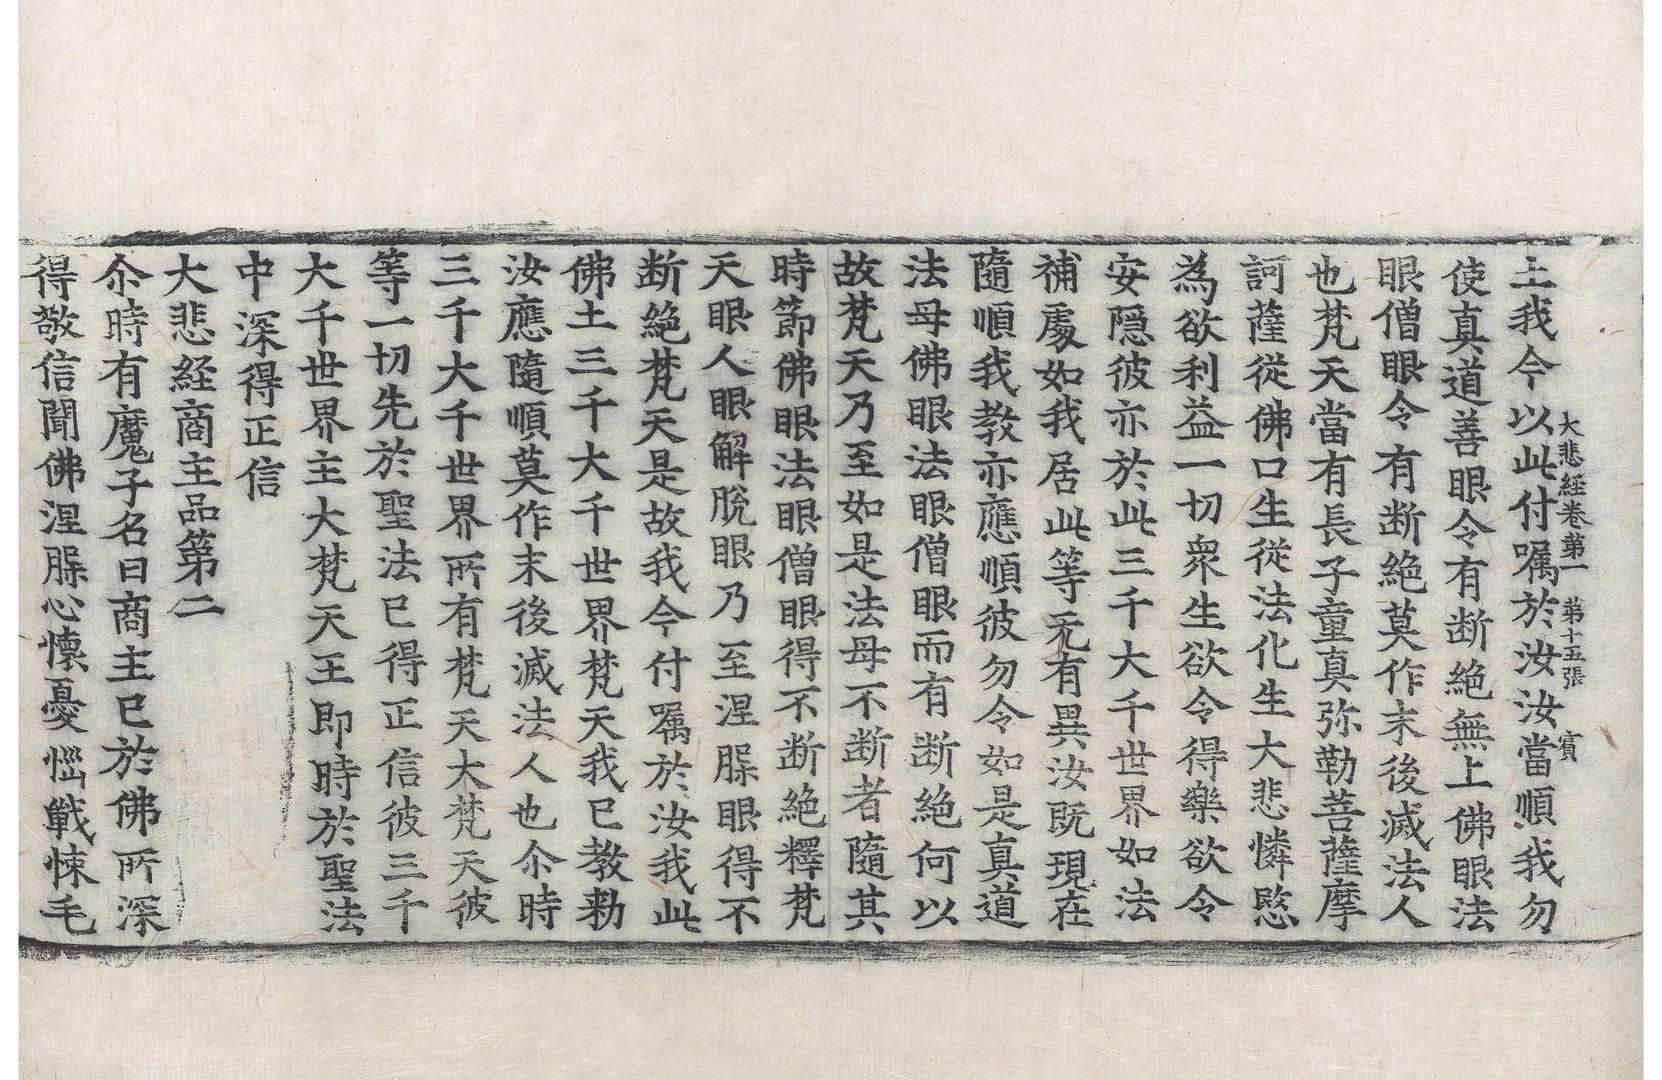 大悲経卷第一　第十五張　賔
土我今以此付嘱於汝汝當順我勿
使真道善眼令有断絶無上佛眼法
眼僧眼令有断絶莫作末後滅法人
也梵天當有長子童真弥勒菩薩摩
訶薩從佛口生從法化生大悲憐愍
為欲利益一切衆生欲令得樂欲令
安隠彼亦於此三千大千世界如法
補處如我居此等无有異汝既現在
隨順我教亦應順彼勿令如是真道
法母佛眼法眼僧眼而有断絶何以
故梵天乃至如是法母不断者隨其
時節佛眼法眼僧眼得不断絶釋梵
天眼人眼解脫眼乃至涅槃眼得不
断絶梵天是故我今付嘱於汝我此
佛土三千大千世界梵天我已教勑
汝應隨順莫作末後滅法人也尒時
三千大千世界所有梵天大梵天彼
等一切先於聖法已得正信彼三千
大千世界主大梵天王即時於聖法
中深得正信
大悲経商主品第二
尒時有魔子名曰商主已於佛所深
得敬信聞佛涅槃心懷憂惱戰悚毛